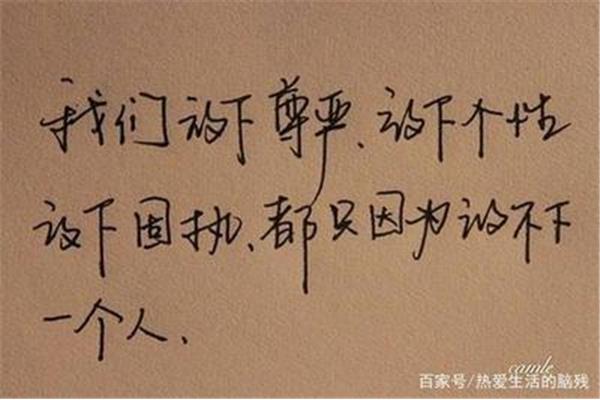 我们放下尊严、放下个性
放下固执、都只因为放不下
一个人、
camle
百家号/热爱生活的脑残